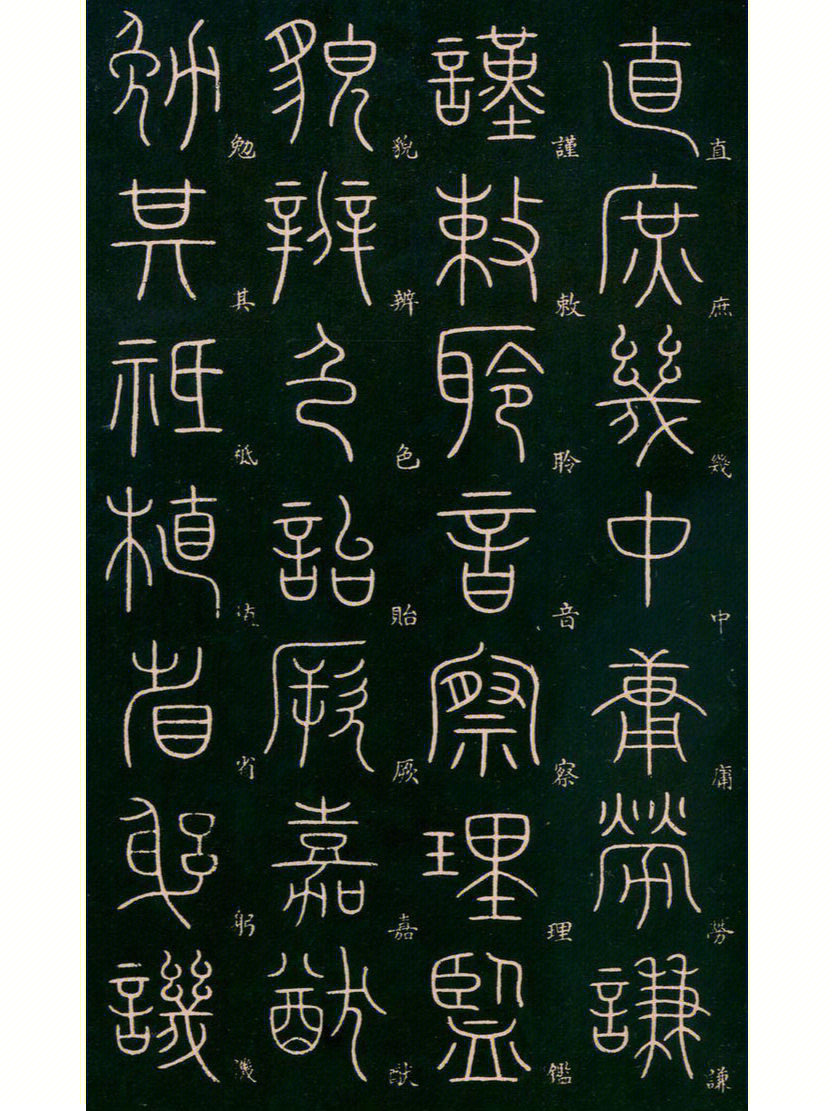 直庶幾中庸勞謙
謹敕聆音察理鑑
貌辨色貽厥嘉猷
勉其祗植省躬譏